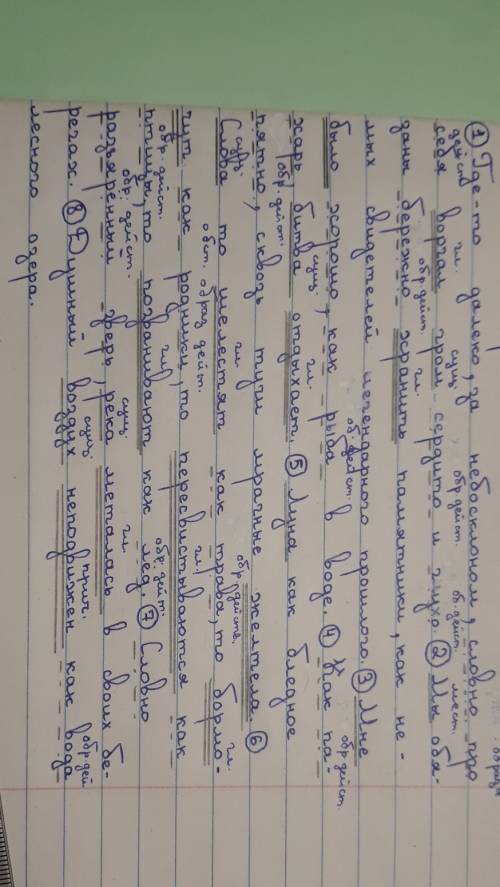 образа
① Где-то далеко, за небосклоном, словно про
действ гл. сущ. обр. дейст. мест.
себя, ворчал гром сердито и глухо. ② Мы обя-
обр. дейст. гл. об. дейст.
заны бережно хранить памятники, как не-
мых свидетелей легендарного прошлого. ③ Мне
об. дейст. обр. дейст.
было хорошо, как рыба в воде. ④ Как па-
обр. дейст. сущ. гл.
харь, битва отдыхает. ⑤ Луна как бледное
обр. действ.
пятно, сквозь тучи мрачные желтела. ⑥
сущ. гл. гл.
Слова то шелестят как трава, то бормо-
обст. образ дейст. гл.
чут как родники, то пересвистываются как
обр. дейст. гл. обр. дейст.
птицы, то позванивают как лед. ⑦ Словно
обр. дейст. сущ. гл.
разъяренный зверь, река металась в своих бе-
сущ. прич. обр дей
регах. ⑧ Душный воздух неподвижен как вода
лесного озера.